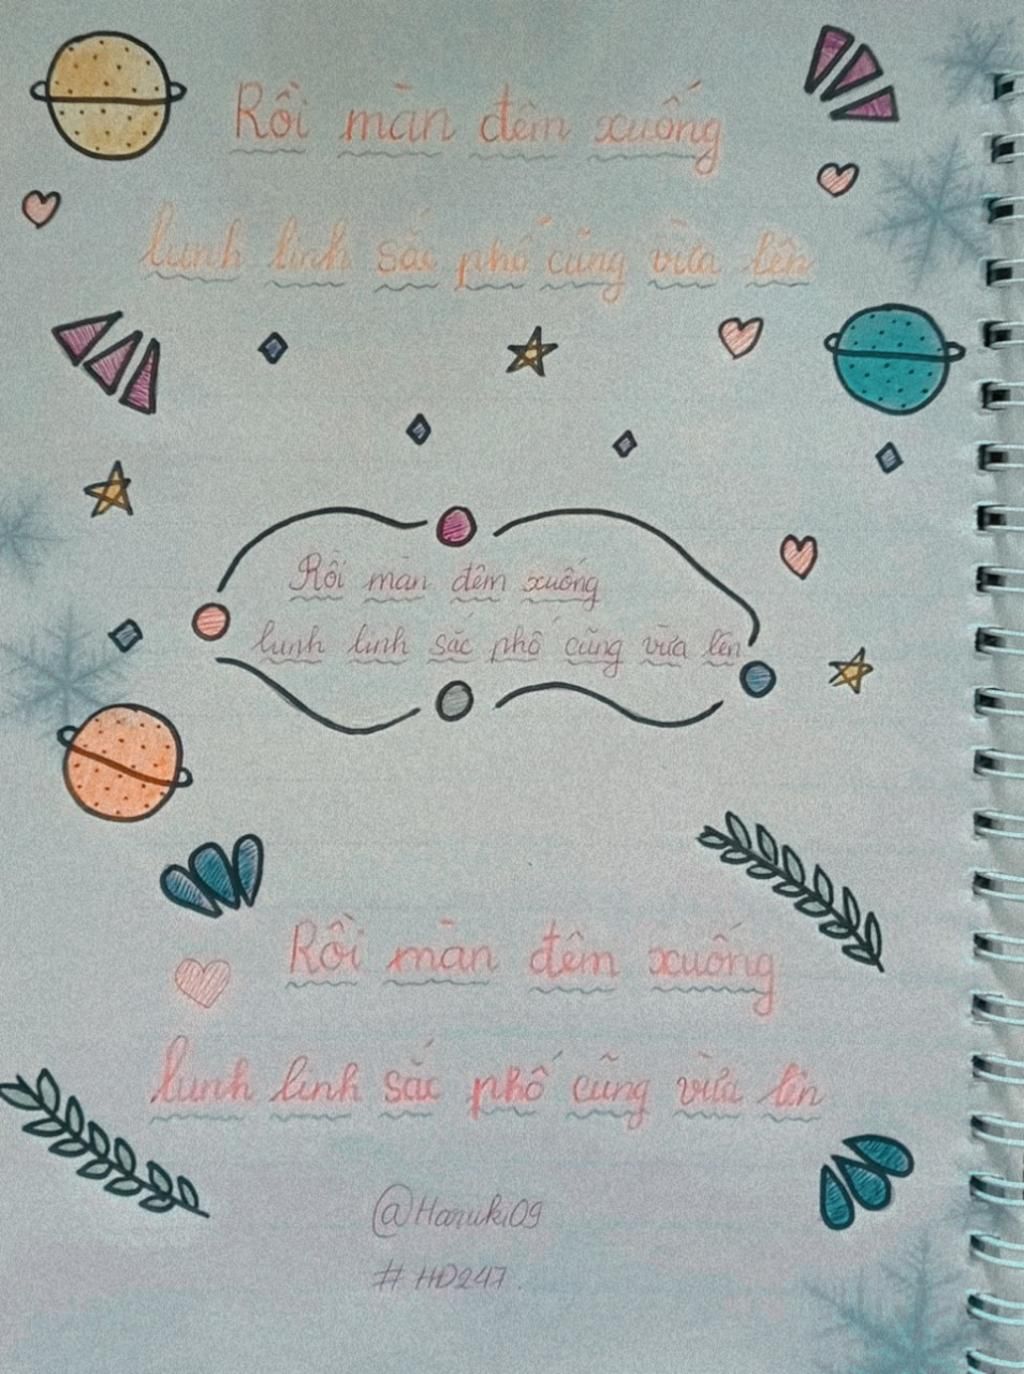 Rồi màn đêm xuống
lunh linh sắc phố cũng vừa lên
Rồi màn đêm xuống
lunh linh sắc phố cũng vừa lên
Rồi màn đêm xuống
lunh linh sắc phố cũng vừa lên
@Haruki09
#HD247.